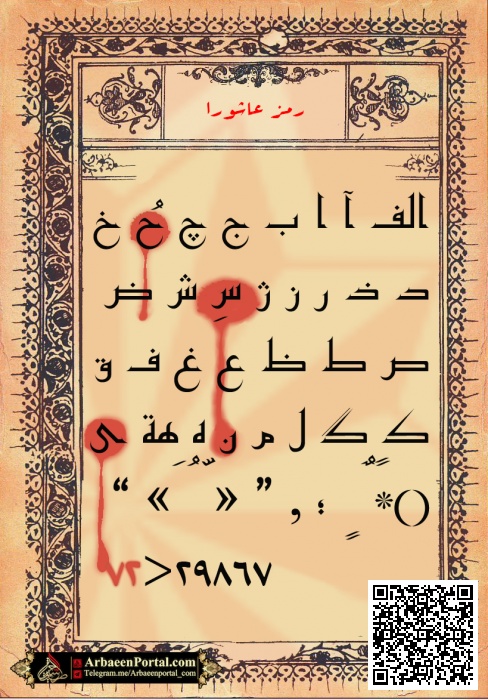 رمز عاشورا
الف آ ا ب ج چ حُ خ
د ذ ر ز ژ سِ ش ض
ص ط ظ ع غ ف ق
ک گ ل م ن ه هة ی
()* ٍ ؛ , ” » « “
۷۲>۲۹۸۶۷
ArbaeenPortal.com
Telegram.me/Arbaeenportal_com